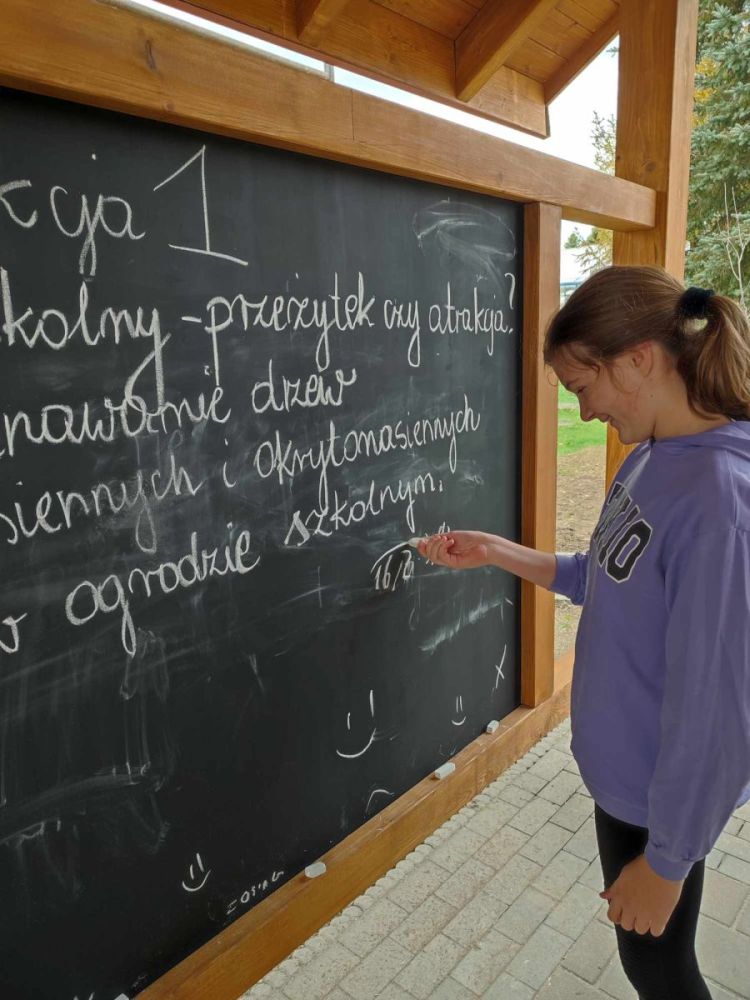 kcja 1
kolny - przeżytek czy atrakcja?
nawanie drzew
siennych i okrytonasiennych
w ogrodzie szkolnym.
16/6